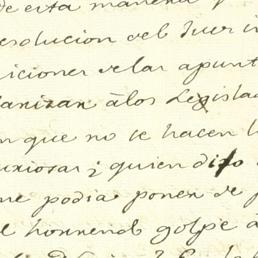 de esta manera y
resolucion del Juez in
iciones de las apunt
anizan à los Legislad
n que no se hacen l
uriosas; quien dixo
me podia poner de p
el horrendo golpe à